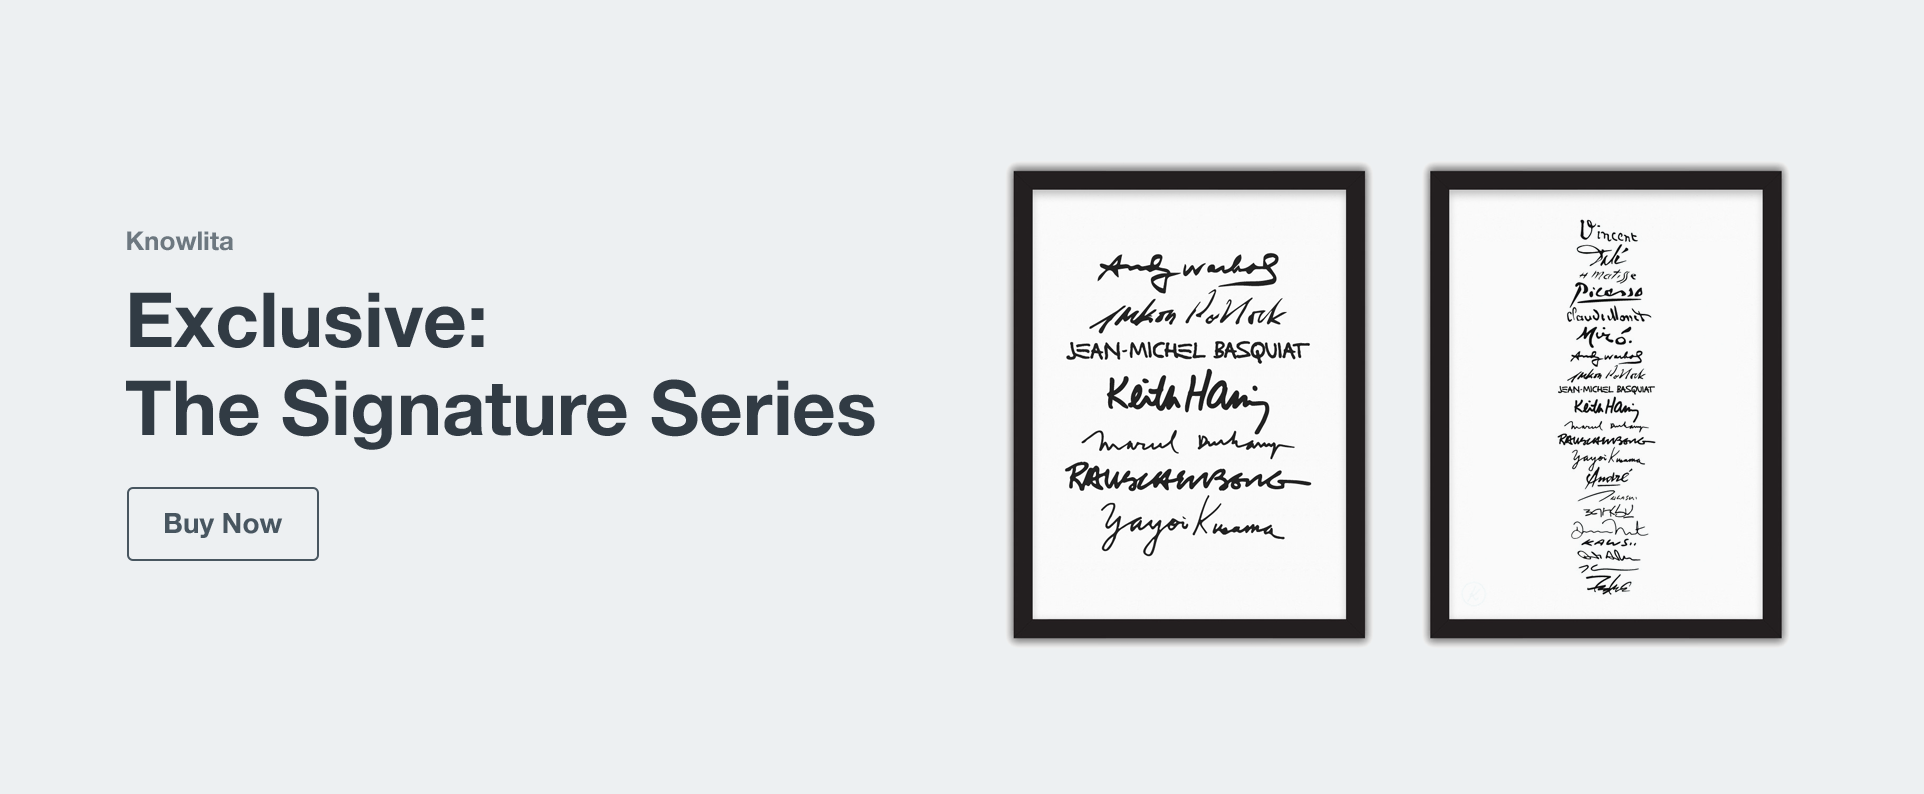 Knowlita
Exclusive:
The Signature Series
Buy Now
Andy Warhol
Jackson Pollock
JEAN-MICHEL BASQUIAT
Keith Haring
Marcel Duchamp
RAUSCHENBERG
Yayoi Kusama
Vincent
Dalí
H Matisse
Picasso
Claude Monet
Miró.
Andy Warhol
Jackson Pollock
JEAN-MICHEL BASQUIAT
Keith Haring
Marcel Duchamp
RAUSCHENBERG
Yayoi Kusama
André
KAWS..